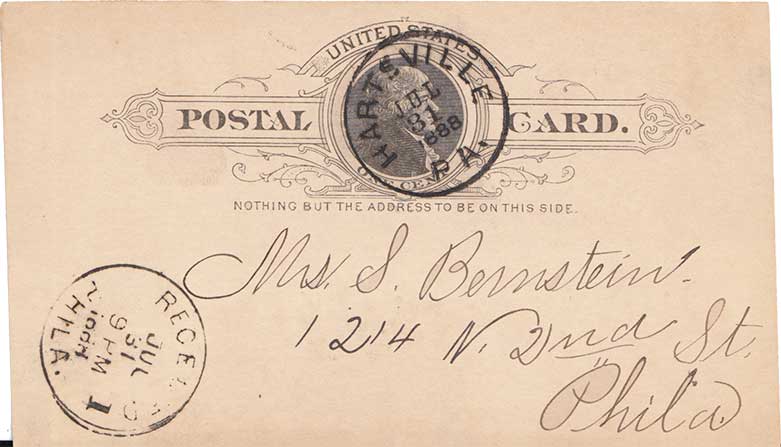 UNITED STATES
POSTAL CARD.
ONE CENT
HARTSVILLE
JUL
31
1888
PA.
NOTHING BUT THE ADDRESS TO BE ON THIS SIDE.
Mrs. S. Bernstein.
1214 N. 2nd St.
Phila
RECEIVED
JUL
31
9 PM
1
PHILA.